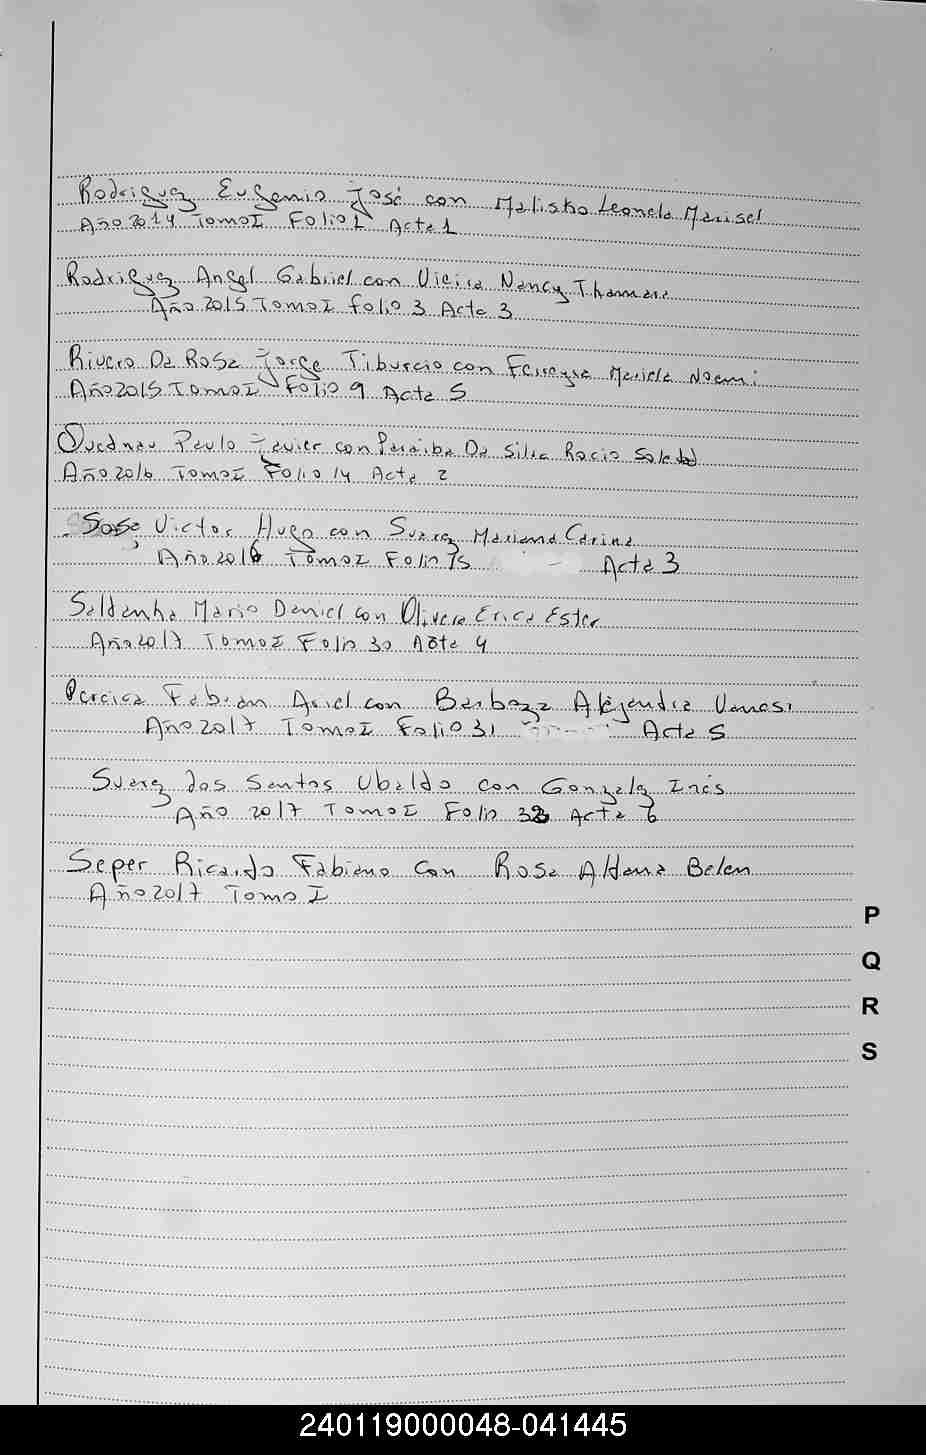 Rodriguez Eugenio José con Malisko Leonela Marisel
Año 2014 Tomo I Folio 1 Acta 1
Rodriguez Angel Gabriel con Vieira Nancy Thamara
Año 2015 Tomo I Folio 3 Acta 3
Rivero Da Rosa Jorge Tiburcio con Ferreyra Mariela Noemi
Año 2015 Tomo I Folio 9 Acta 5
Paulo Javier con Paraiba Da Silva Rocio Soledad
Año 2016 Tomo I Folio 14 Acta 2
Sosa Victor Hugo con Suarez Mariana Carina
Año 2016 Tomo I Folio 15 Acta 3
Saldanha Mario Daniel con Olivera Erica Ester
Año 2017 Tomo I Folio 30 Acta 4
Pereira Fabian Ariel con Barboza Alejandra Vanesi
Año 2017 Tomo I Folio 31 Acta 5
Suarez dos Santos Ubaldo con Gonzalez Inés
Año 2017 Tomo I Folio Acta 6
Seper Ricardo Fabiano con Rosa Aldana Belen
Año 2017 Tomo I
P
Q
R
S
240119000048-041445